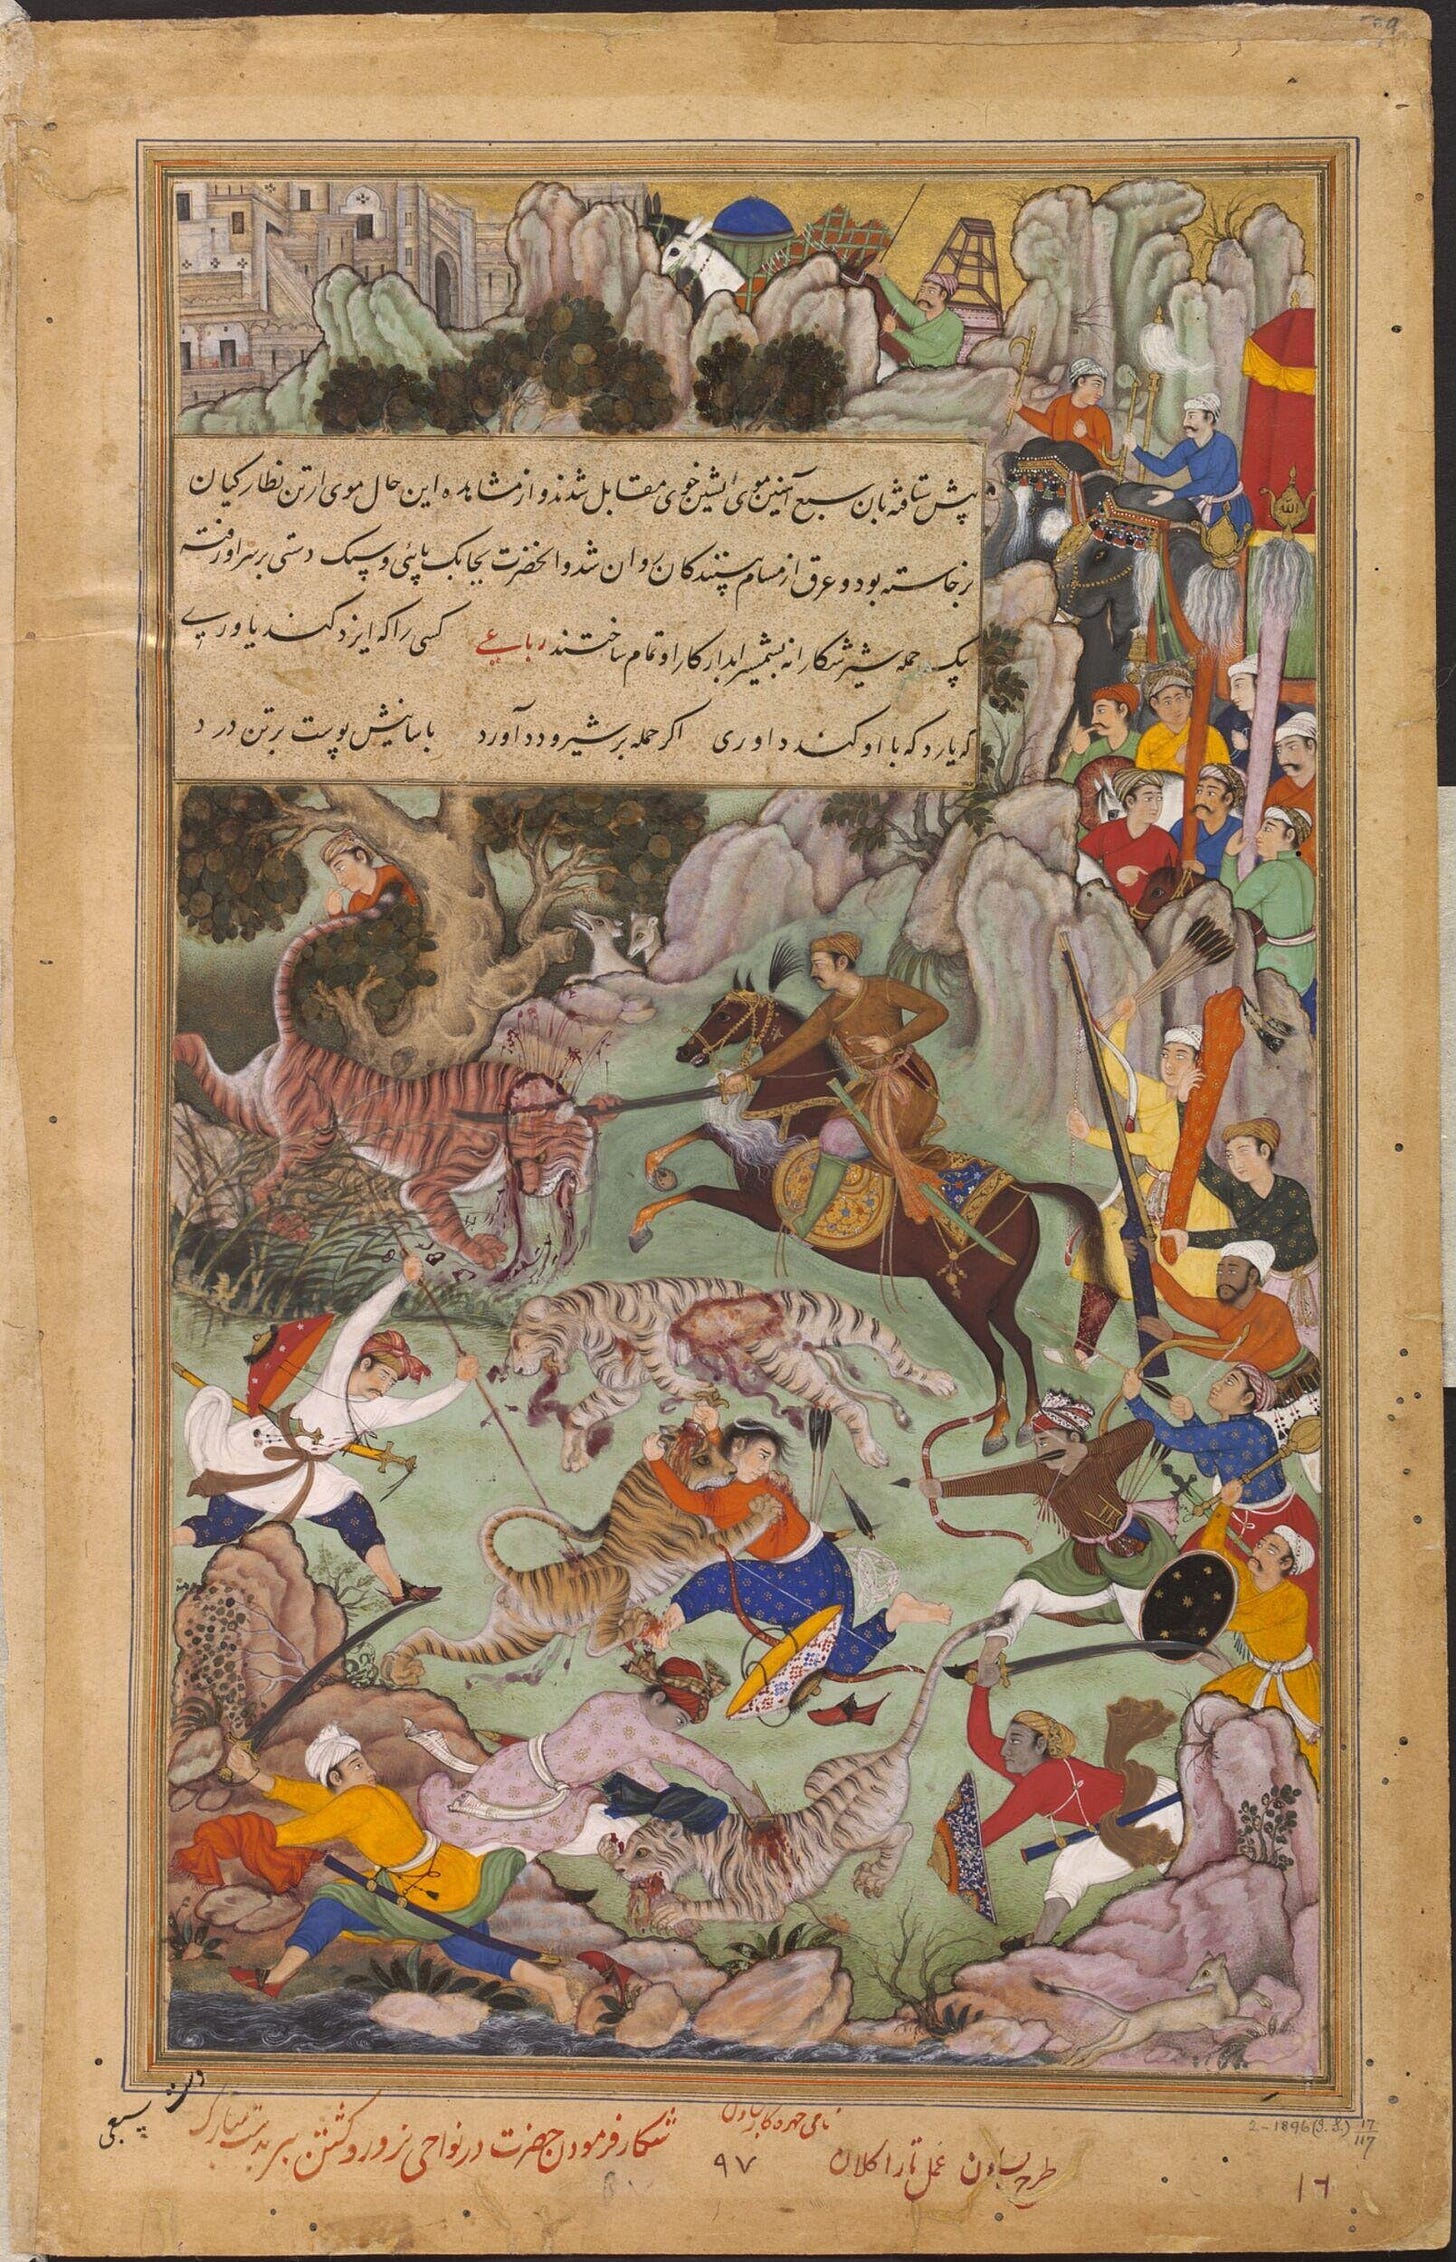 پیش شتافته بان سبع آهنین موی آتشین خوی مقابل شدند و از مشاهده این حال موی از تن نظارکیان
برخاسته بود و عرق از مسام بینندکان روان شد و انحضرت بچابک پائی و سبک دستی بر سر او رفته
بیک حمله شیر شکارانه بشمشیر ابدار کار او تمام ساختند رباعی کسی را که ایزد کند یاوری
که یارد که با او کند داوری اکر حمله بر شیر و دد آورد باسانیش پوست بر تن درد
شکار فرمودن حضرت در نواحی نرور و کشتن ببر بدست مبارک
طرح بساون عمل تارا کلان
۹۷
2-1896 (I.S.) 17/117